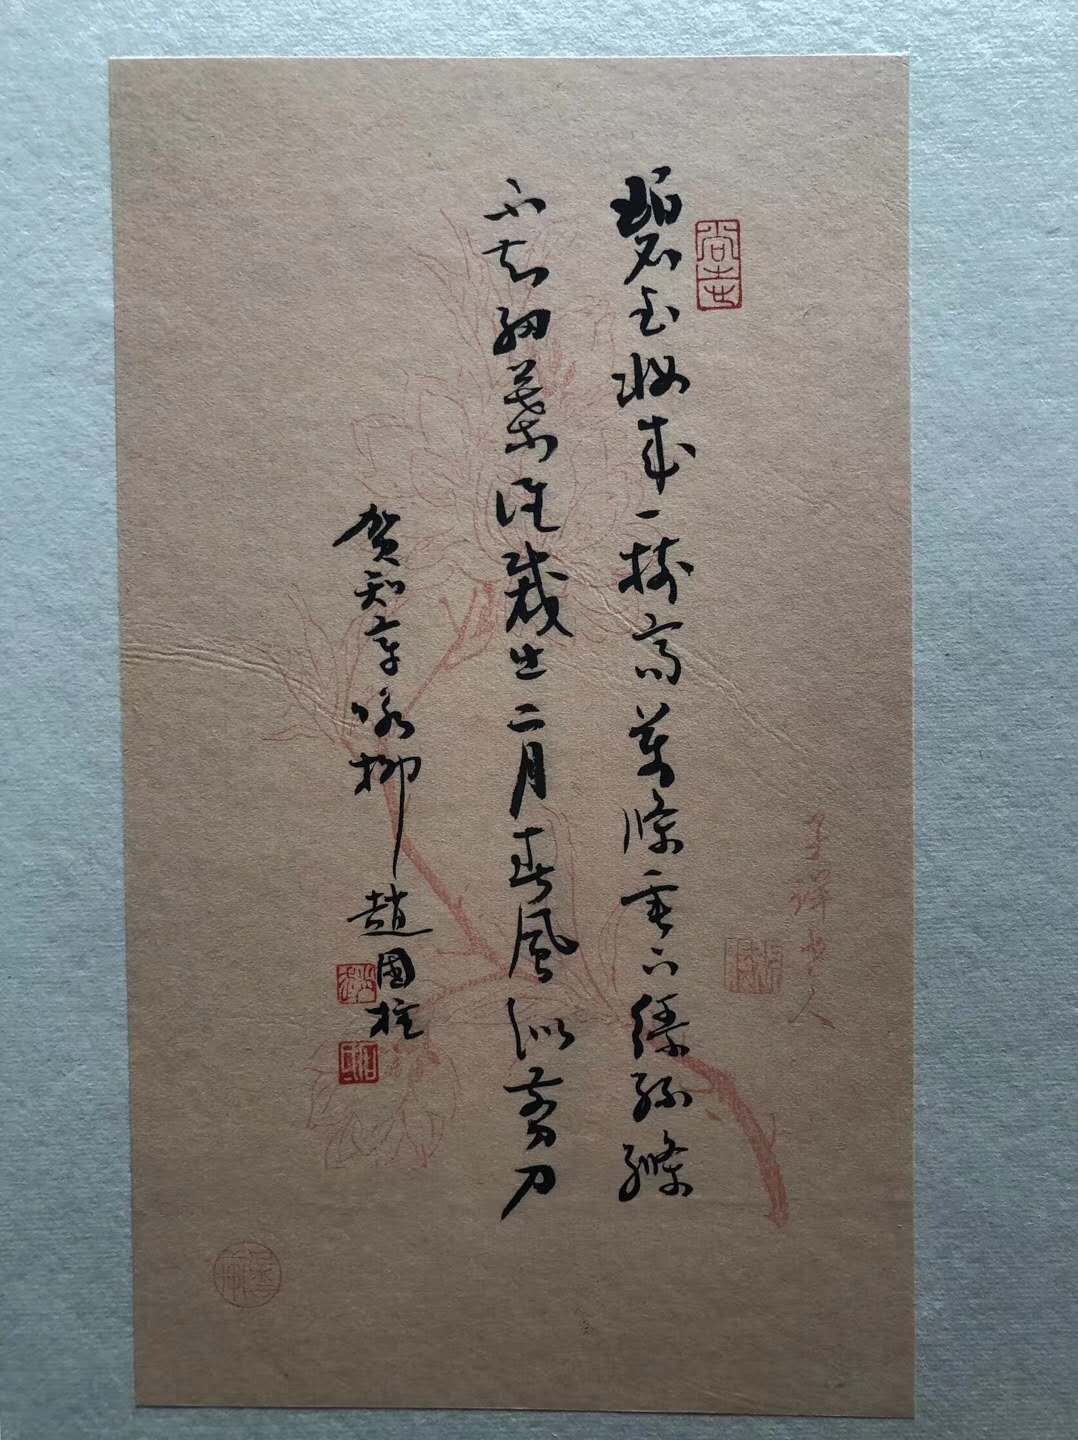 碧玉妝成一樹高萬條垂下綠絲縧
不知細葉誰裁出二月春風似剪刀
賀知章咏柳 趙國柱